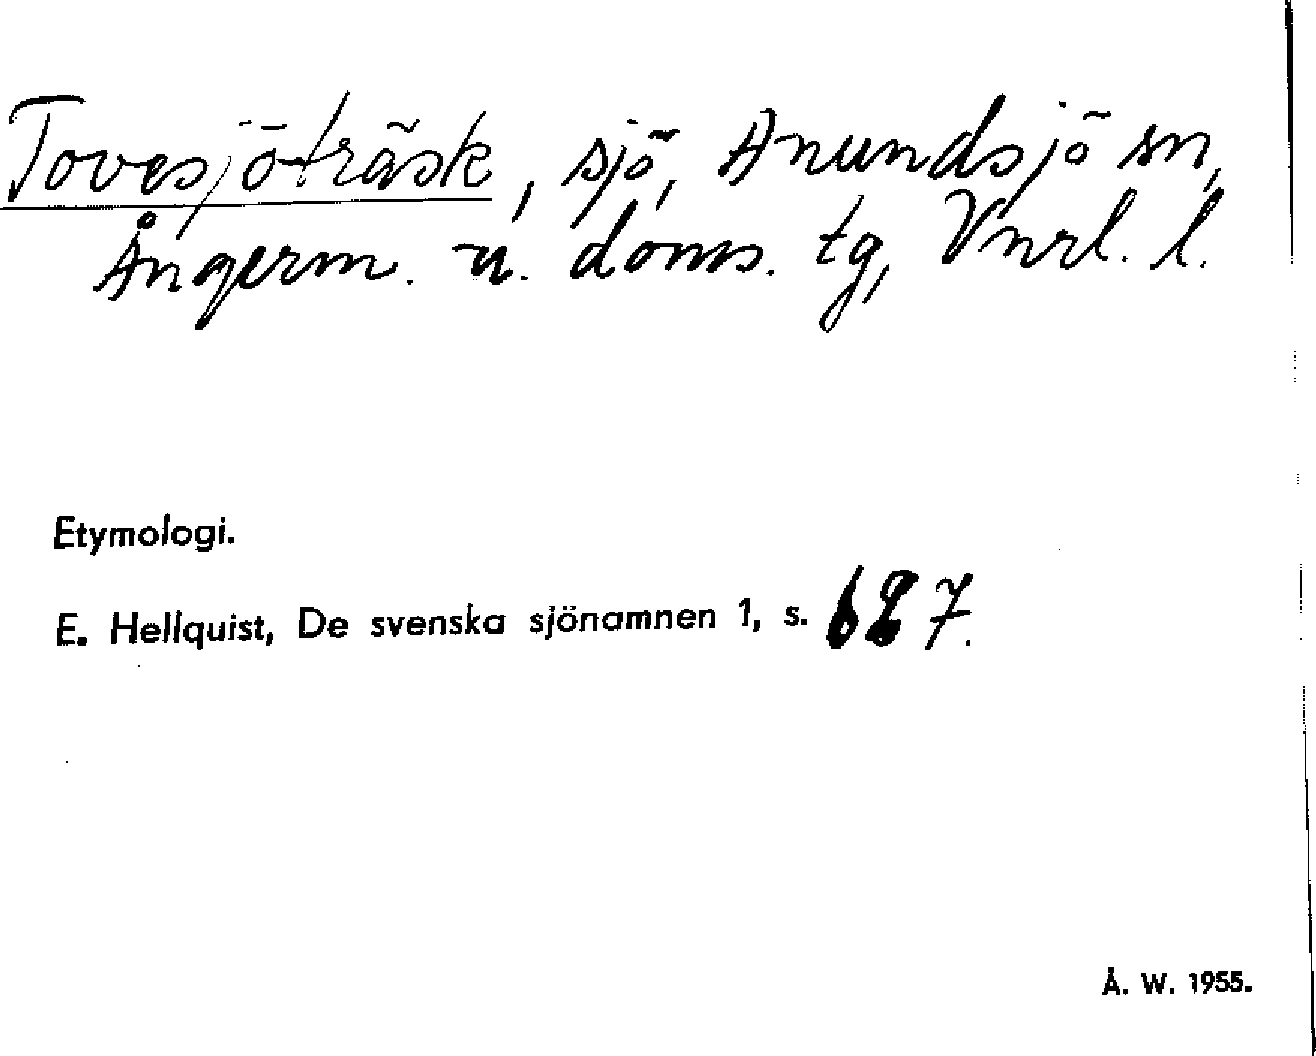 Tovesjöträsk, sjö, Anundsjö sn,
Ångerm. n. doms. tg, Vnrl. l.
Etymologi.
E. Hellquist, De svenska sjönamnen 1, s. 627.
Å. W. 1955.